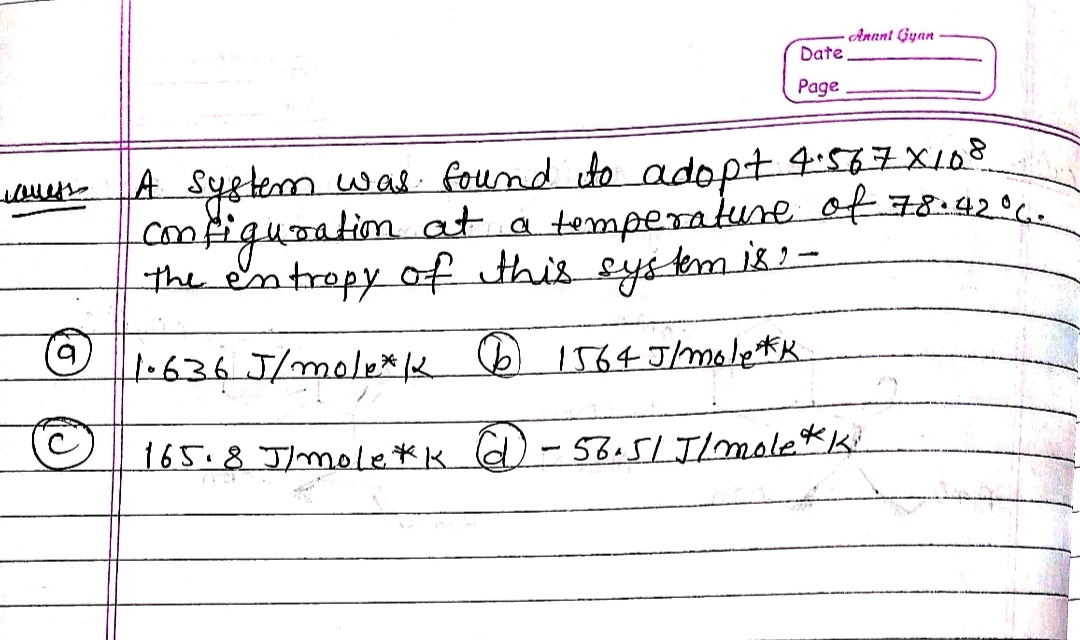 Anant Gyan
Date
Page
A system was found to adopt 4.567 X10⁸
configuration at a temperature of 78.42°C.
The entropy of this system is:-
(a) 1.636 J/mole*K (b) 1564 J/mole*K
(c) 165.8 J/mole*K (d) - 56.51 J/mole*K